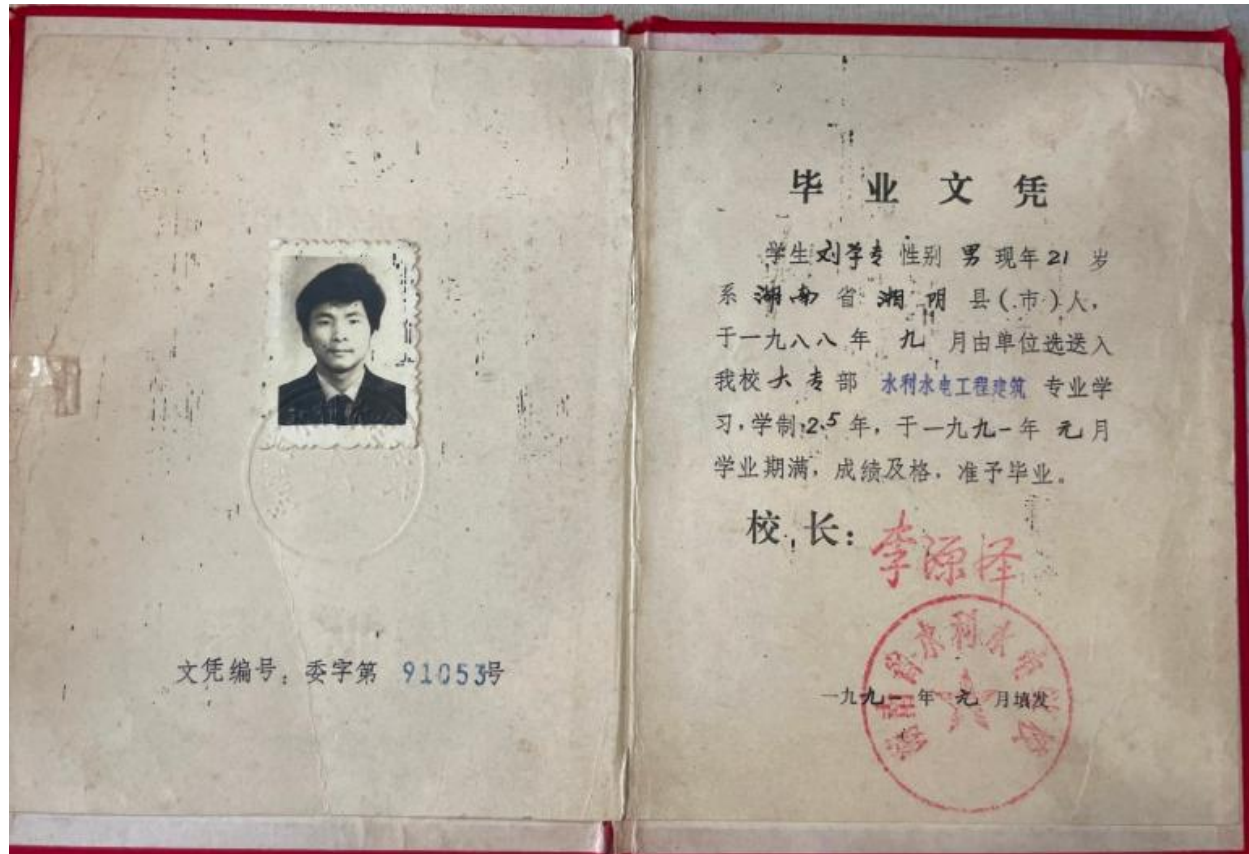 文凭编号：委字第 91053号
毕业文凭
学生刘学专性别 男 现年21 岁
系 湖南 省 湘阴 县(市)人，
于一九八八年 九 月由单位选送入
我校大专部 水利水电工程建筑 专业学
习，学制2.5年，于一九九一年 元月
学业期满，成绩及格，准予毕业。
校长：李源泽
湖南省水利水电学校
一九九一年 元 月填发